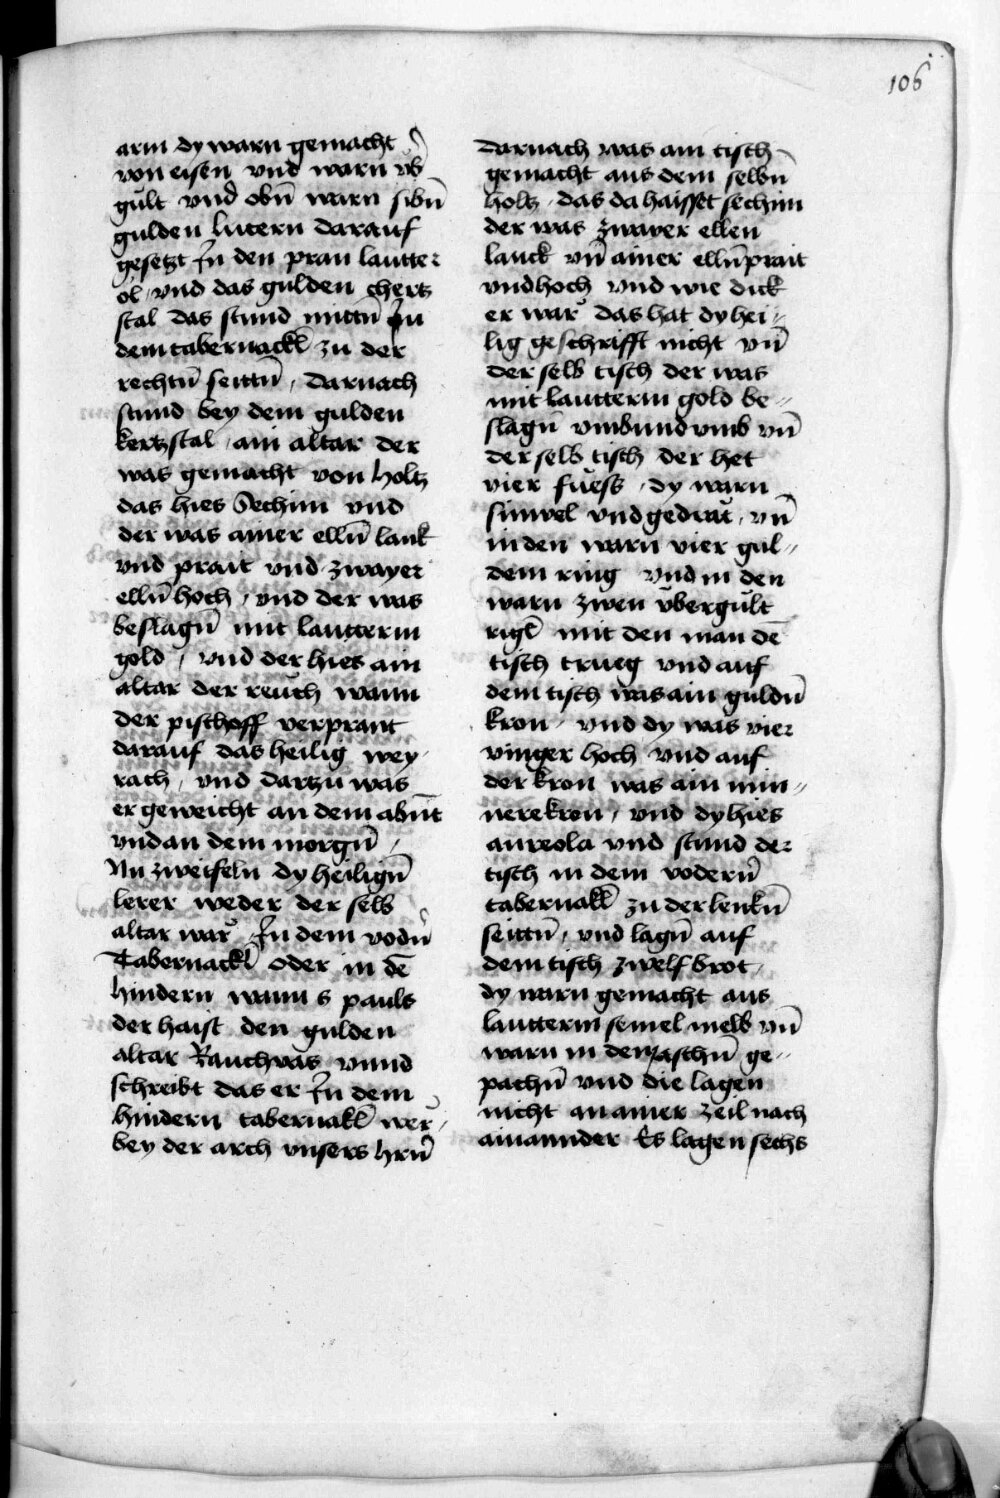 106
arm dy warn gemacht
von eisen vnd warn vb̄
gült vnd obn̄ warn sibn̄
gulden lucern darauf
gesetzt In den pran lautter
öl / vnd das gulden chertz
stal das stund mittn̄ In
dem tabernackl̄ zu der
rechtn̄ seittn̄ / Darnach
stund bey dem gulden
kertzstal / ain altar der
was gemacht von holtz
das hies Sechim vnd
der was ainer elln̄ lank
vnd prait vnd zwayer
elln̄ hoch / vnd der was
beslagn̄ mit lautterm
gold / vnd der hies ain
altar der reuch wann
der pischoff verprant
darauf das heilig wey
rach / vnd dartzu was
er geweicht an dem abn̄t
vnd an dem morgn̄ /
Nu zweifeln dy heilign̄
lerer weder der selb
altar war In dem vodn̄
Tabernackl̄ oder in dē
hindern wann s pauls
der haist den gulden
altar Rauchvas vnnd
schreibt das er In dem
hindern tabernakl̄ wer /
bey der arch vnsers hrn̄
Darnach was ain tisch
gemacht aus dem selbn̄
holtz / das da haisset sechim
der was zwayer ellen
lanck vn̄ ainer elln̄ prait
vnd hoch vnd wie dick
er war das hat dy hei=
lig geschrifft nicht vn̄
der selb tisch der was
mit lautterm gold be=
slagn̄ vmb vnd vmb vn̄
der selb tisch der het
vier fuess / dy warn
sinwel vnd gedrat / vn̄
in den warn vier gul=
dem ring vnd in den
warn zwen vbergült
rigl̄ mit den man dē
tisch trueg vnd auf
dem tisch was ain guldn̄
kron / vnd dy was vier
vinger hoch vnd auf
der kron was ain min=
nere kron / vnd dy hies
aureola vnd stund der
tisch in dem vodern̄
tabernakl̄ zu der lenkn̄
seittn̄ / vnd lagn̄ auf
dem tisch zwelf brot /
dy warn gemacht aus
lautterm semel melb vn̄
warn in den aschn̄ ge=
pachn̄ vnd die lagen
nicht an ainer zeil nach
ainannder Es lagen sechs